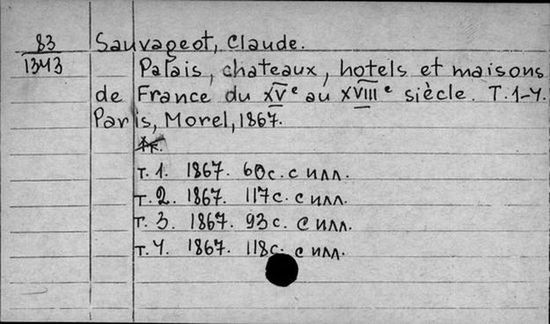 83 Sauvageot, Claude.
1343 Palais, chateaux, hotels et maisons
de France du XVe au XVIIIe siècle. T. 1-4.
Paris, Morel, 1867.
т. 1. 1867. 60с. с илл.
т. 2. 1867. 117с. с илл.
т. 3. 1867. 93с. с илл.
т. 4. 1867. 118с. с илл.